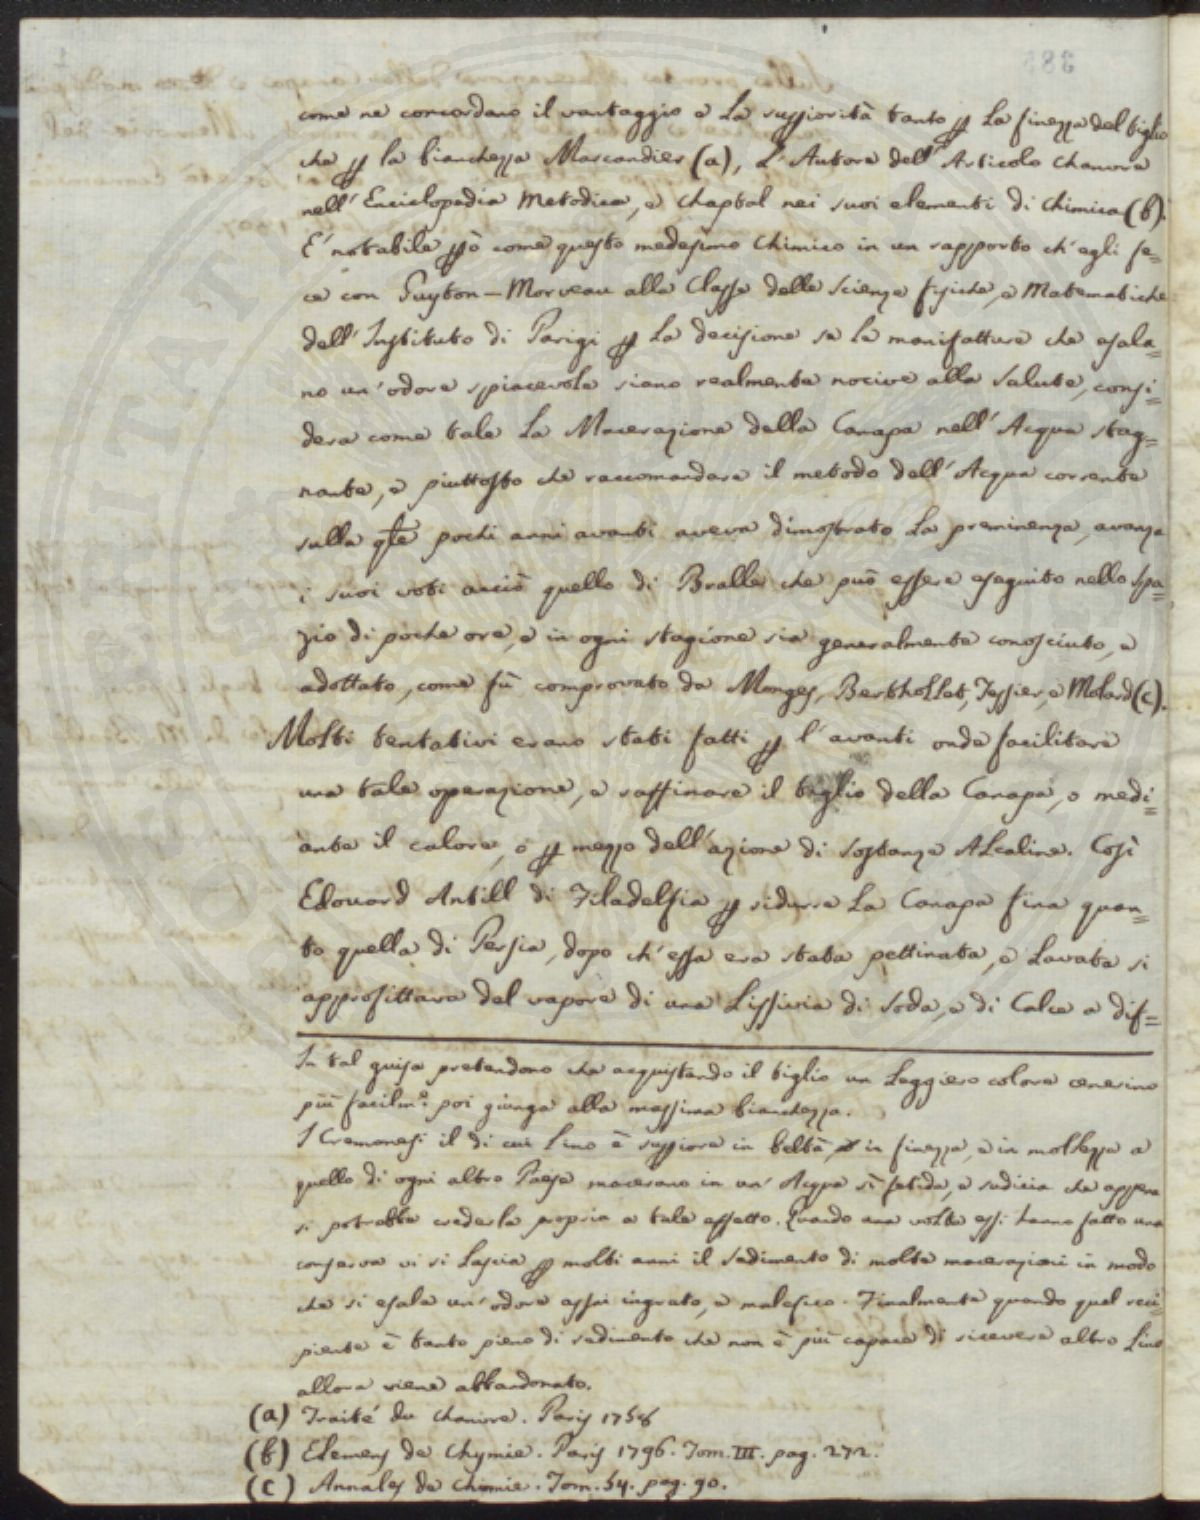 come ne concordano il vantaggio e la supiorità tanto p la finezza del tiglio
che p la bianchezza Marcandier (a), L'Autore dell'Articolo Chanvre
nell'Enciclopedia Metodica, e Chaptal nei suoi elementi di Chimica (b).
E' notabile pò come questo medesimo Chimico in un rapporto ch'egli fe=
ce con Guyton-Morveau alla Classe delle Scienze fisiche, e Matematiche
dell'Instituto di Parigi p la decisione se le manifatture che esala=
no un'odore spiacevole siano realmente nocive alla Salute, consi=
dera come tale la Macerazione della Canapa nell'Acqua stag=
nante, e piuttosto che raccomandare il metodo dell'Acqua corrente
sulla qle pochi anni avanti aveva dimostrato la preminenza, avanza
i suoi voti acciò quello di Bralle che può essere eseguito nello spa=
zio di poche ore, e in ogni stagione sia generalmente conosciuto, e
adottato, come fù comprovato da Monges, Berthollet, Tessier, e Molard (c).
Molti tentativi erano stati fatti p l'avanti onde facilitare
una tale operazione, e raffinare il tiglio della Canapa, o medi=
ante il calore, o p mezzo dell'azione di Sostanze Alcaline. Così
Edouard Antill di Filadelfia p ridurre la Canapa fina quan=
to quella di Persia, dopo ch'essa era stata pettinata, e lavata si
approfittava del vapore di una Lissivia di Soda, e di Calce a dif=
In tal guisa pretendono che acquistando il tiglio un leggiero colore cenerino
più facilme. poi giunga alla massima bianchezza.
I Cremonesi il di cui Lino è supiore in beltà in finezza, e in mollezza a
quello di ogni altro Paese macerano in un'Acqua sì fetida, e sudicia che appena
si potrebbe crederla propria a tale effetto. Quando una volta essi hanno fatto una
conserva vi si lascia p molti anni il sedimento di molte macerazioni in modo
che si esala un'odore assai ingrato, e malefico. Finalmente quando quel reci=
piente è tanto pieno di sedimento che non è più capace di ricevere altro Lino
allora viene abbandonato.
(a) Traité du Chanvre. Paris 1758
(b) Elemens de Chymie. Paris 1796. Tom. III. pag. 272.
(c) Annales de Chimie. Tom. 54. pag. 90.